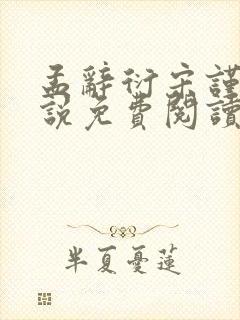 孟辭衍宋謹
說免費閱讀
半夏憂蓮